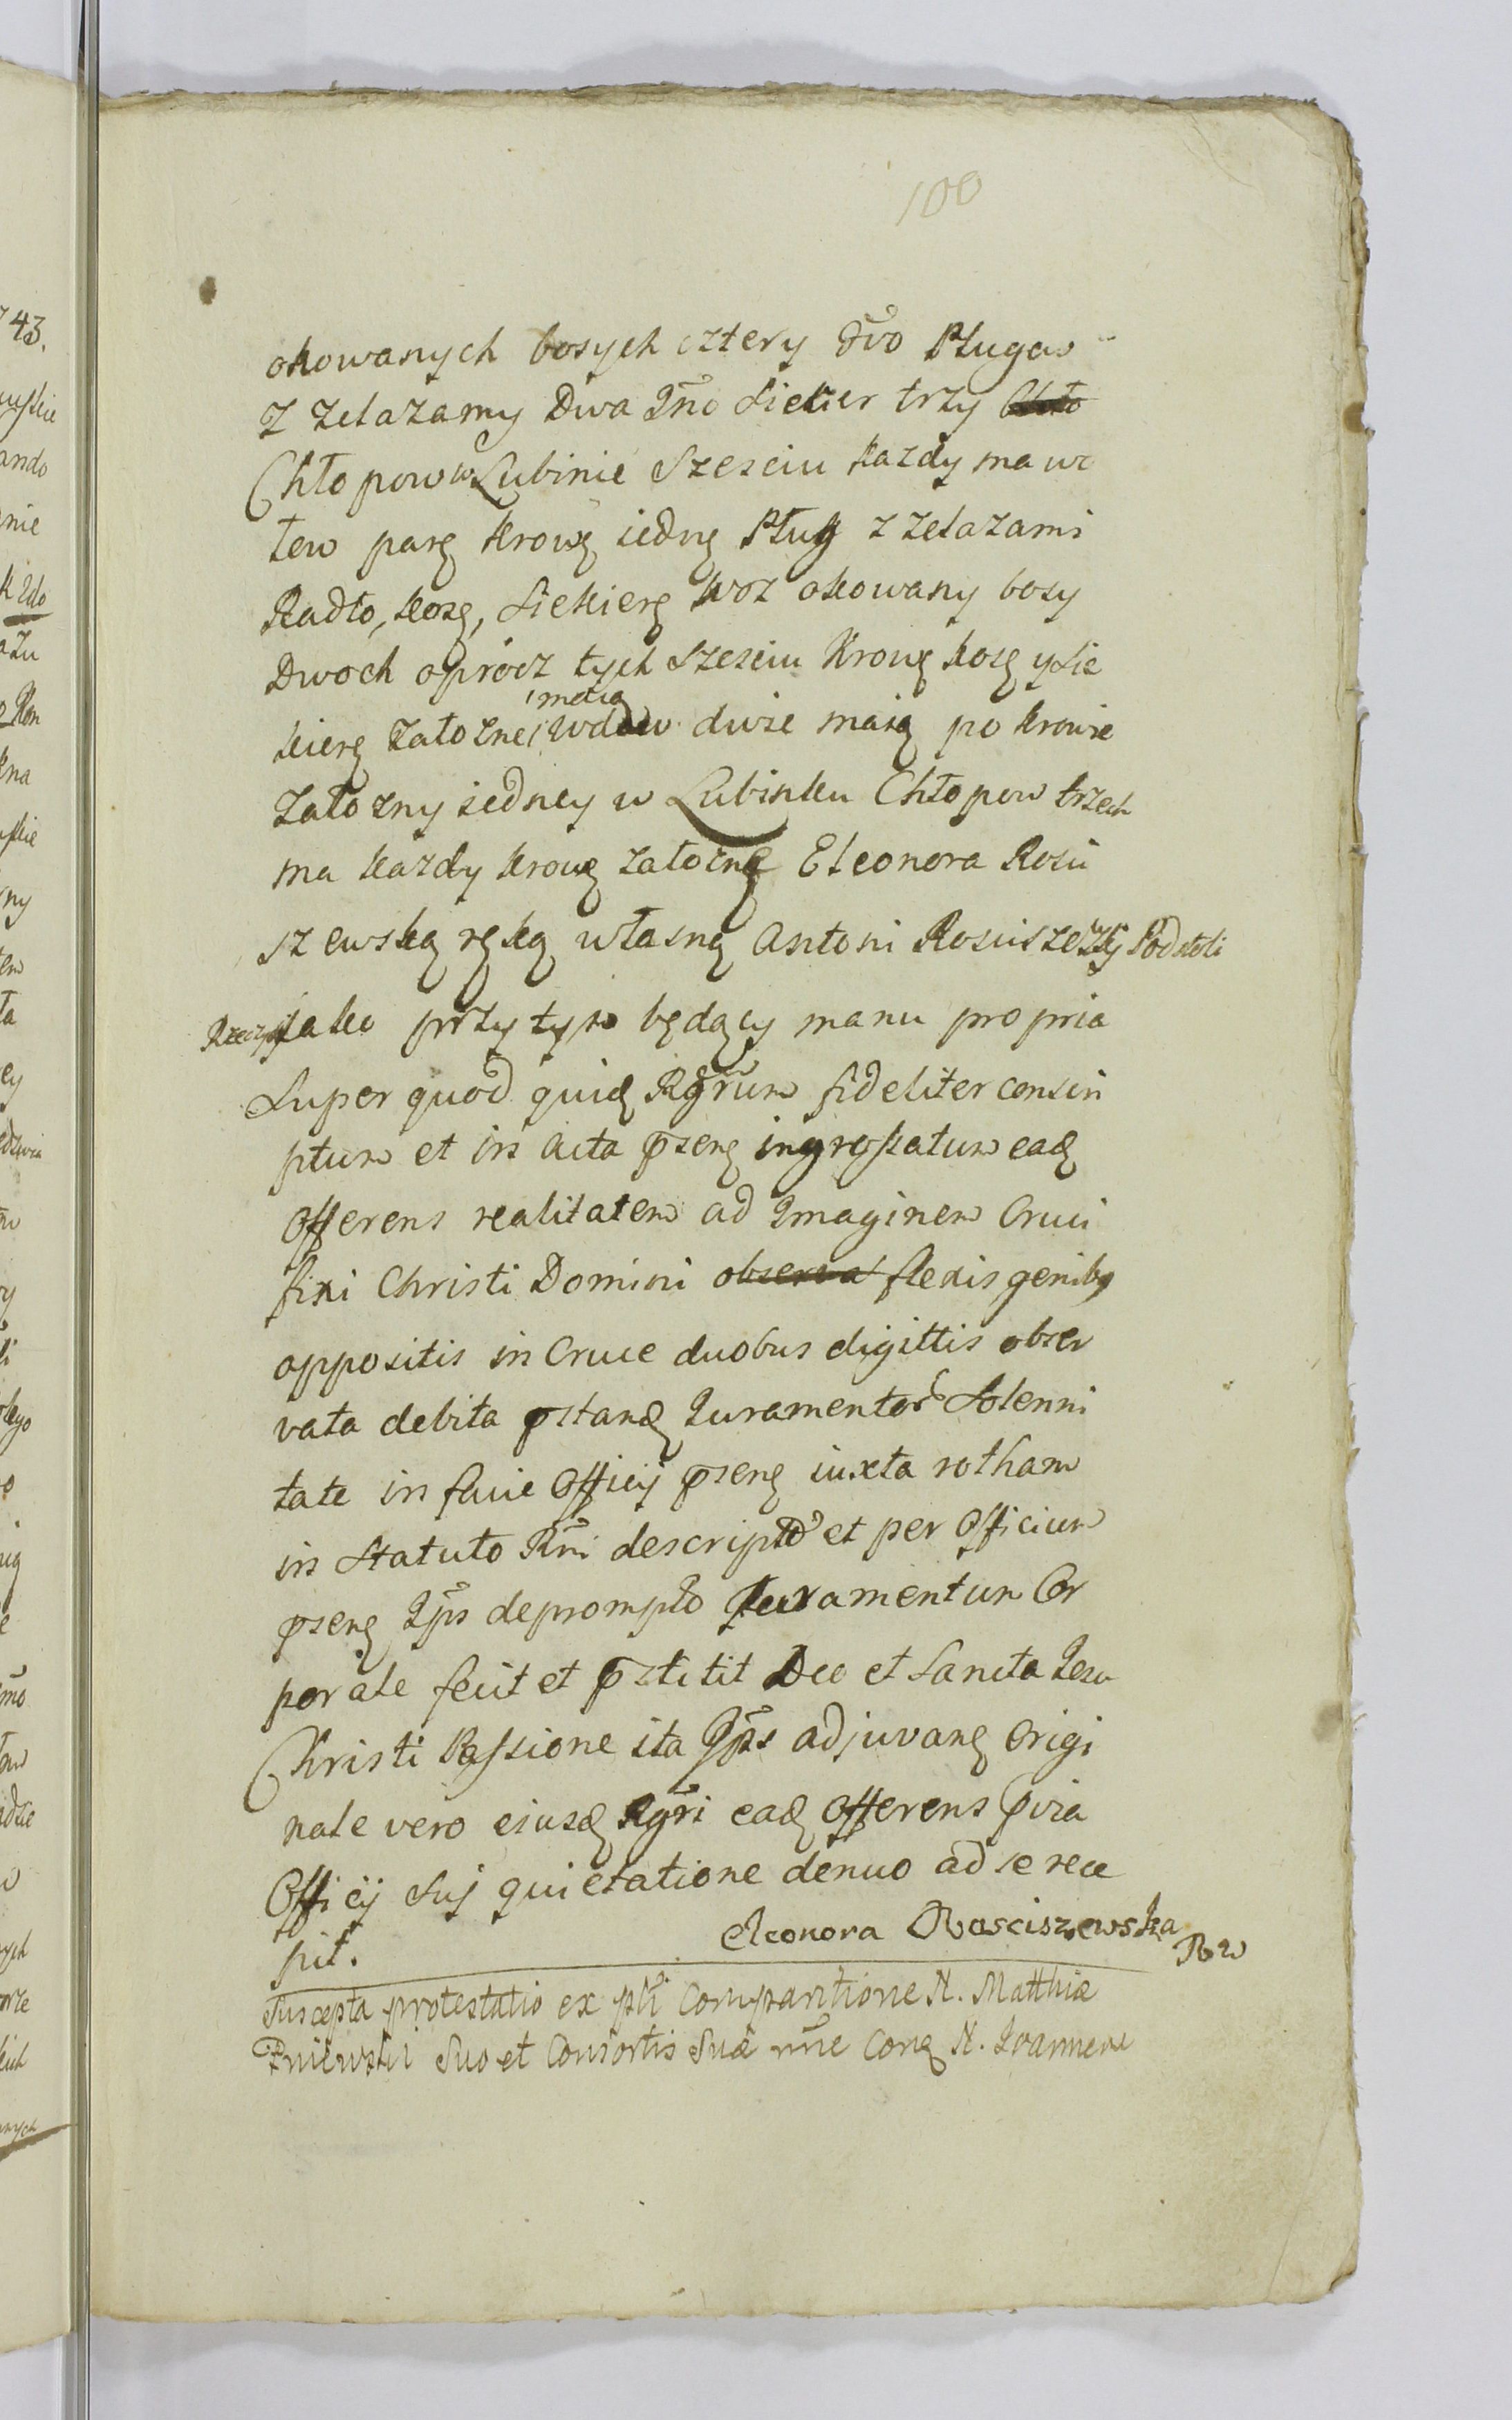 100
okowanych bosych cztery Dvo Pługow
z zelazamy Dwa Jno Siekier trzy
Chłopow w Lubinie Szesciu każdy ma wo
łow parę krowę iednę Pług z zelazami
Radło, kosę, Siekierę woz okowany bosy
Dwoch oprócz tych Szesciu Krowę kosę y Sie
kierę załozne, Wdow dwie maią po krowie
załozny iedney w Lubinku Chłopow trzech
ma kazdy krowę załozną Eleonora Rosci
szewską ręką własną Antoni Rosciszewsky Podstoli
jako przy tym będący manu propria
Super quod quidę Rgrum fideliter conscri
ptum et in Acta psenę ingrossatum eadę
Offerens realitatem ad Imaginem Cruci
fixi Christi Domini observa flexis genibꝯ
oppositis in Cruce duobus digittis obser
vata debita pstandę Juramentor Solenni
tate in facie Officij psenę iuxta rotham
in Statuto Rni descripto et per Officium
psenę Jps deprompto Juramentum Cor
porale fecit et pstitit Deo et Sancta Jesu
Christi Passione ita Jpse adjuvanę Origi
nale vero eiusdę Rgri eadę Offerens pvia
Officij Suj quietatione denuo ad se rece
pit.
Eleonora Rosciszewska
Suscepta protestatio ex pti Comparitione N. Matthiæ
Suo et Consortis Suæ nne Conę N. Joannem